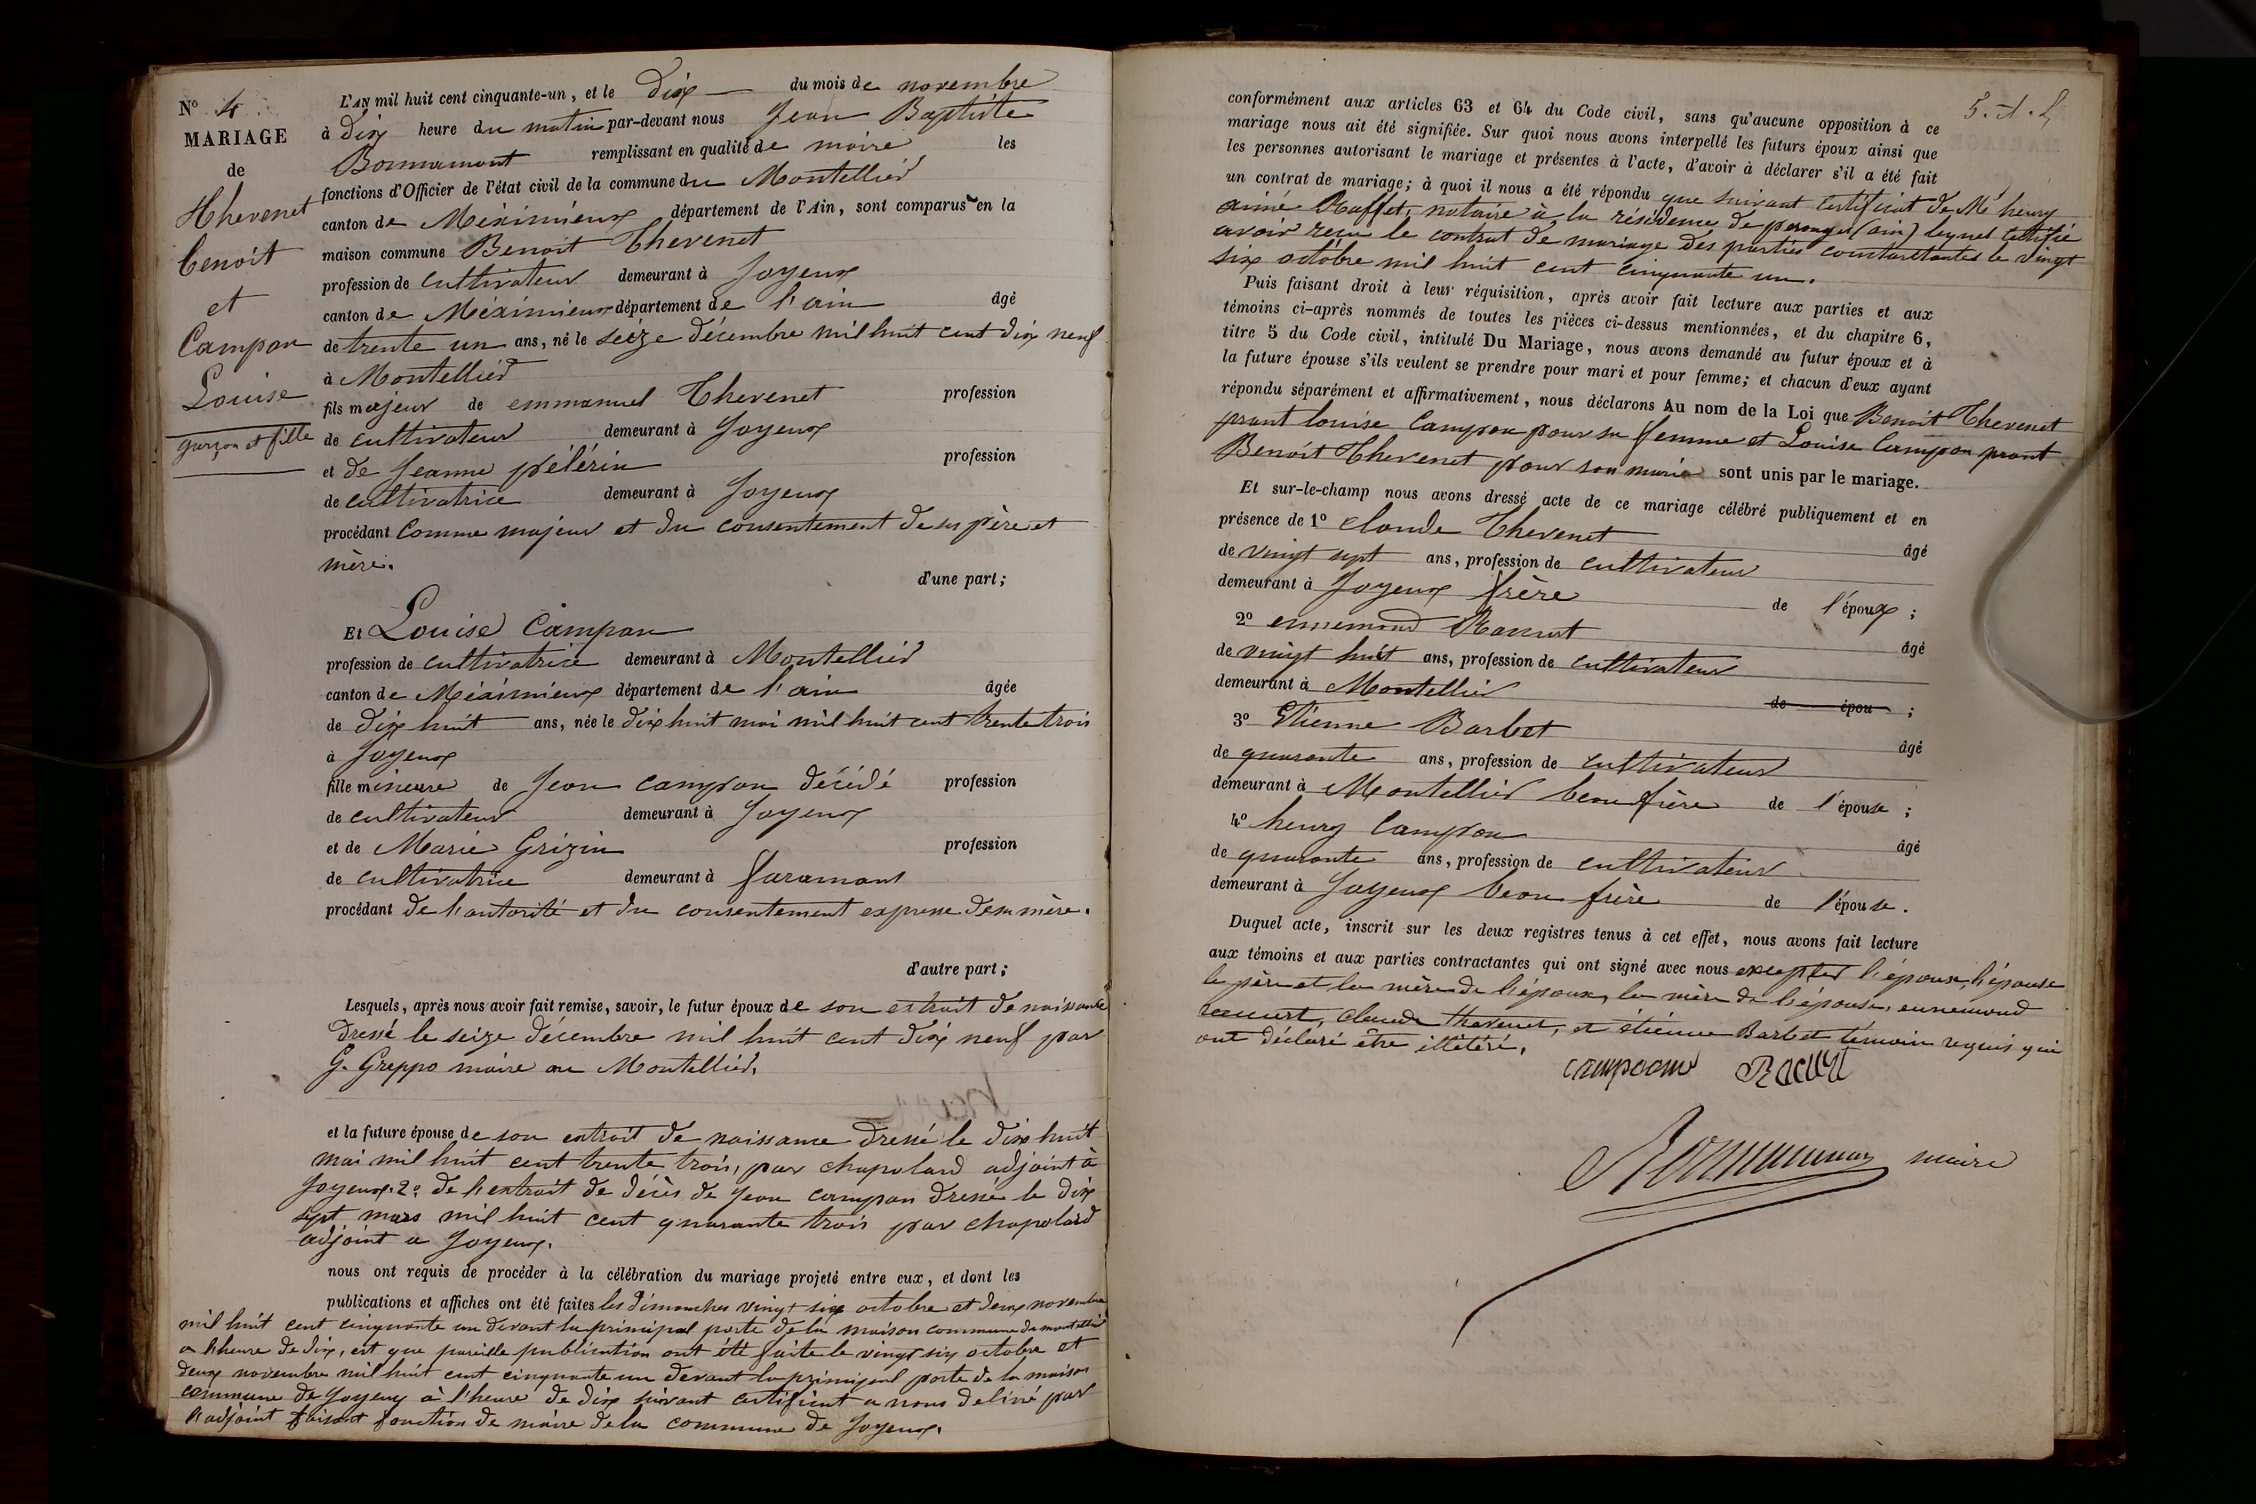 N° 4
MARIAGE
de
Thevenet
benoit
et
Campan
Louise
garçon et fille
L'AN mil huit cent cinquante-un, et le Dix du mois de novembre
à Dix heure du matin par-devant nous Jean Baptiste
remplissant en qualité de maire les
fonctions d'Officier de l'état civil de la commune du Montellier
canton de Méximieux département de l'Ain, sont comparus en la
maison commune Benoit Thevenet
profession de cultivateur demeurant à Joyeux
canton de Méximieux département de l'ain âgé
de trente un ans, né le seize décembre mil huit cent dix neuf
à Montellier
fils majeur de emmanuel Thevenet profession
de cultivateur demeurant à Joyeux
et de Jeanne pélérin profession
de cultivatrice demeurant à Joyeux
procédant comme majeur et du consentement de ses père et
mère.
d'une part;
Et Louise Campan
profession de cultivatrice demeurant à Montellier
canton de Méximieux département de l'ain âgée
de dix huit ans, née le dix huit mai mil huit cent trente trois
à Joyeux
fille mineure de Jean campan décédé profession
de cultivateur demeurant à Joyeux
et de Marie Grizin profession
de cultivatrice demeurant à faramans
procédant de l'autorité et du consentement expresse de sa mère.
d'autre part;
Lesquels, après nous avoir fait remise, savoir, le futur époux de son extrait de naissance
Dressé le seize décembre mil huit cent dix neuf par
G. Greppo maire au Montellier.
et la future épouse de son extrait de naissance dressé le dix huit
mai mil huit cent trente trois, par chapoland adjoint à
Joyeux. 2° de l'extrait de décès de Jean campan dressé le dix
sept mars mil huit cent quarante trois par chapolard
adjoint a Joyeux.
nous ont requis de procéder à la célébration du mariage projeté entre eux, et dont les
publications et affiches ont été faites les dimanches vingt six octobre et deux novembre
mil huit cent cinquante un devant la principal porte de la maison commune du montellier
a l'heure de dix, est que pareille publication ont été faite le vingt six octobre et
deux novembre mil huit cent cinquante un devant la principal porte de la maison
commune de Joyeux à l'heure de dix suivant certificat a nous delivré par
l'adjoint faisant fonction de maire de la commune de Joyeux.
conformément aux articles 63 et 64 du Code civil, sans qu'aucune opposition à ce
mariage nous ait été signifiée. Sur quoi nous avons interpellé les futurs époux ainsi que
les personnes autorisant le mariage et présentes à l'acte, d'avoir à déclarer s'il a été fait
un contrat de mariage; à quoi il nous a été répondu que suivant certificat de Mé henry
aimé Raffet, notaire à la résidence de perouges (ain) lequel certifié
avoir reçu le contrat de mariage des parties contarctantes le vingt
six octobre mil huit cent cinquante un.
Puis faisant droit à leur réquisition, après avoir fait lecture aux parties et aux
témoins ci-après nommés de toutes les pièces ci-dessus mentionnées, et du chapitre 6,
titre 5 du Code civil, intitulé Du Mariage, nous avons demandé au futur époux et à
la future épouse s'ils veulent se prendre pour mari et pour femme; et chacun d'eux ayant
répondu séparément et affirmativement, nous déclarons Au nom de la Loi que Benoit Thevenet
prant louise Campan pour sa femme et Louise Campan prant
Benoit Thevenet pour son marie sont unis par le mariage.
Et sur-le-champ nous avons dressé acte de ce mariage célébré publiquement et en
présence de 1° claude Thevenet âgé
de vingt sept ans, profession de cultivateur
demeurant à Joyeux frère de l'époux ;
2° ennemond Racurt âgé
de vingt huit ans, profession de cultivateur
demeurant à Montellier de épou ;
3° Etienne Barbet âgé
de quarante ans, profession de cultivateur
demeurant à Montellier beau frère de l'épouse ;
4° henry Campan âgé
de quarante ans, profession de cultivateur
demeurant à Joyeux beau frère de l'épouse.
Duquel acte, inscrit sur les deux registres tenus à cet effet, nous avons fait lecture
aux témoins et aux parties contractantes qui ont signé avec nous excepter l'époux, l'épouse
le père et la mère de l'époux, la mère de l'épouse, ennemond
racurt, claude thevenet, et étienne Barbet témoin requis qui
ont déclaré être illétéré.
campaom Racurt
maire